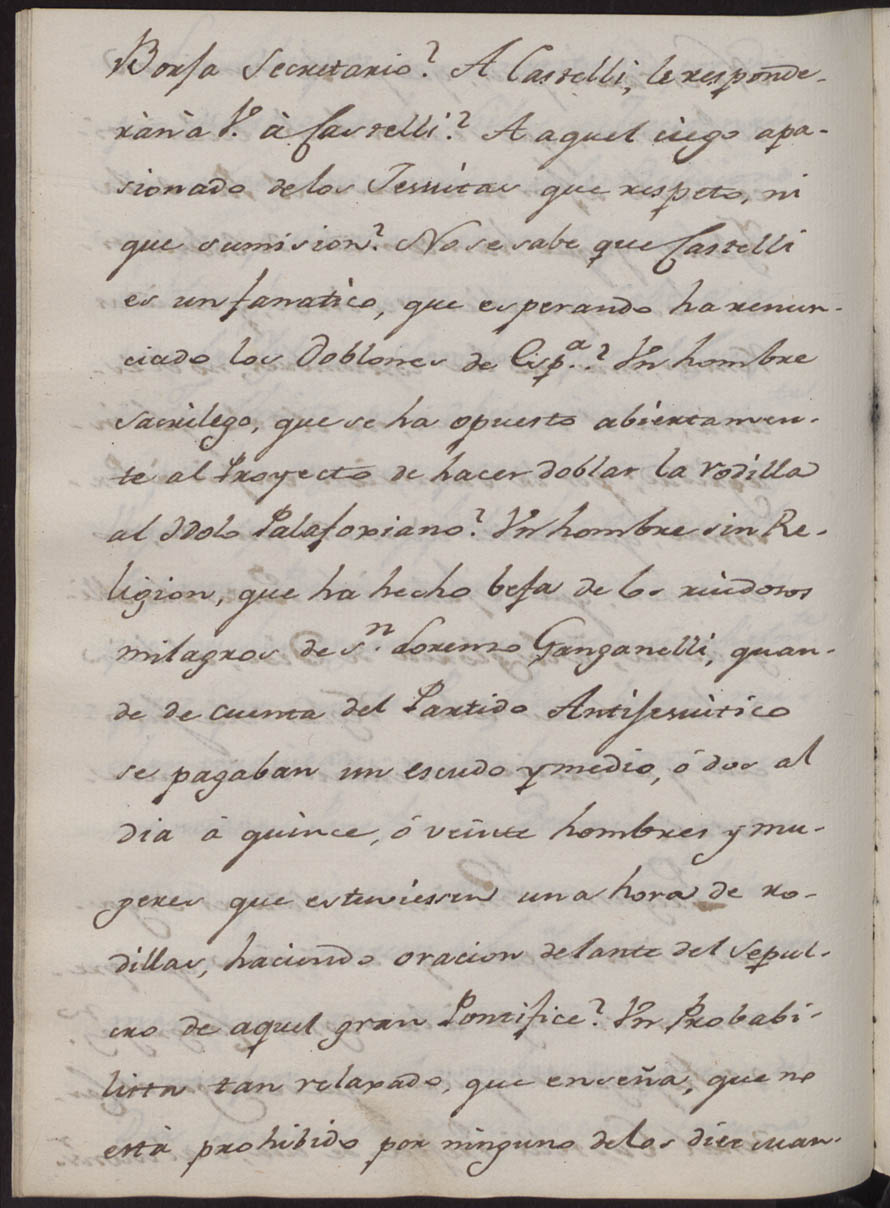 Borsa Secretario? A Castelli, le responde-
ràn a V. à Castelli? A aquel ciego apa-
sionado delos Jesuitas que respeto, ni
que sumision? No se sabe que Castelli
es un fanatico, que esperando ha renun-
ciado los Doblones de Espª.? Un hombre
sacrilego, que se ha opuesto abiertamen-
te al Proyecto de hacer doblar la rodilla
al Idolo Palafoxiano? Un hombre sin Re-
ligion, que ha hecho befa de los ruidosos
milagros de Sn. Lorenzo Ganganelli, quan-
do de cuenta del Partido Antijesuitico
se pagaban un escudo y medio, ó dos al
dia à quince, ó veinte hombres y mu-
geres que estuviessen una hora de ro-
dillas, haciendo oracion delante del sepul-
cro de aquel gran Pontifice? Un Probabi-
lista tan relaxado, que enseña, que no
està prohibido por ninguno delos diez man-